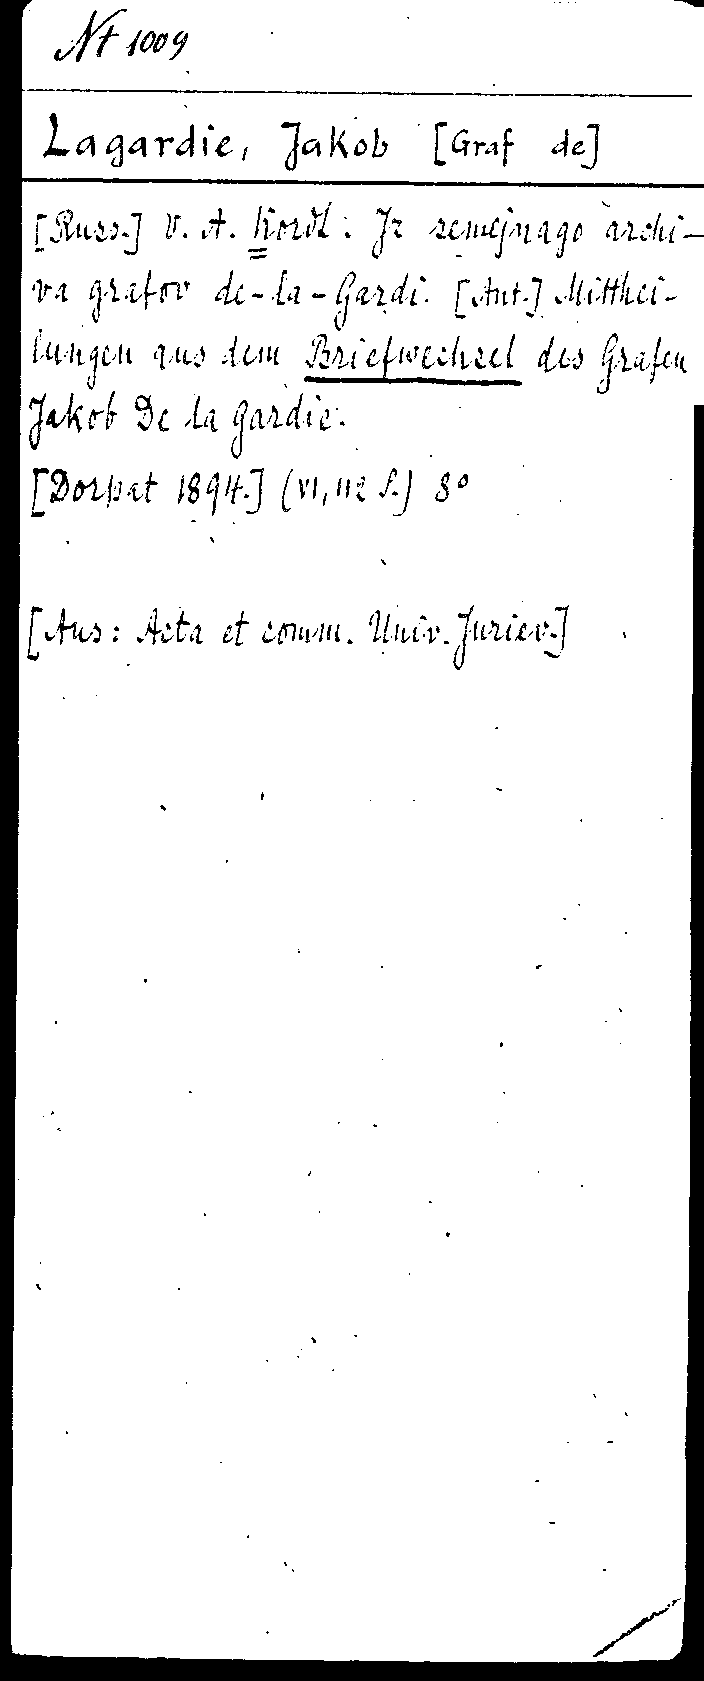 Nt 1009
Lagardie, Jakob [Graf de]
[Russ.] V. A. Kordt: Iz semejnago archi-
va grafov de-la-Gardi. [Ant.] Mitthei-
lungen aus dem Briefwechsel des Grafen
Jakob De la Gardie.
[Dorpat 1894.] (VI, 112 S.) 8°
[Aus: Acta et comm. Univ. Juriev.]